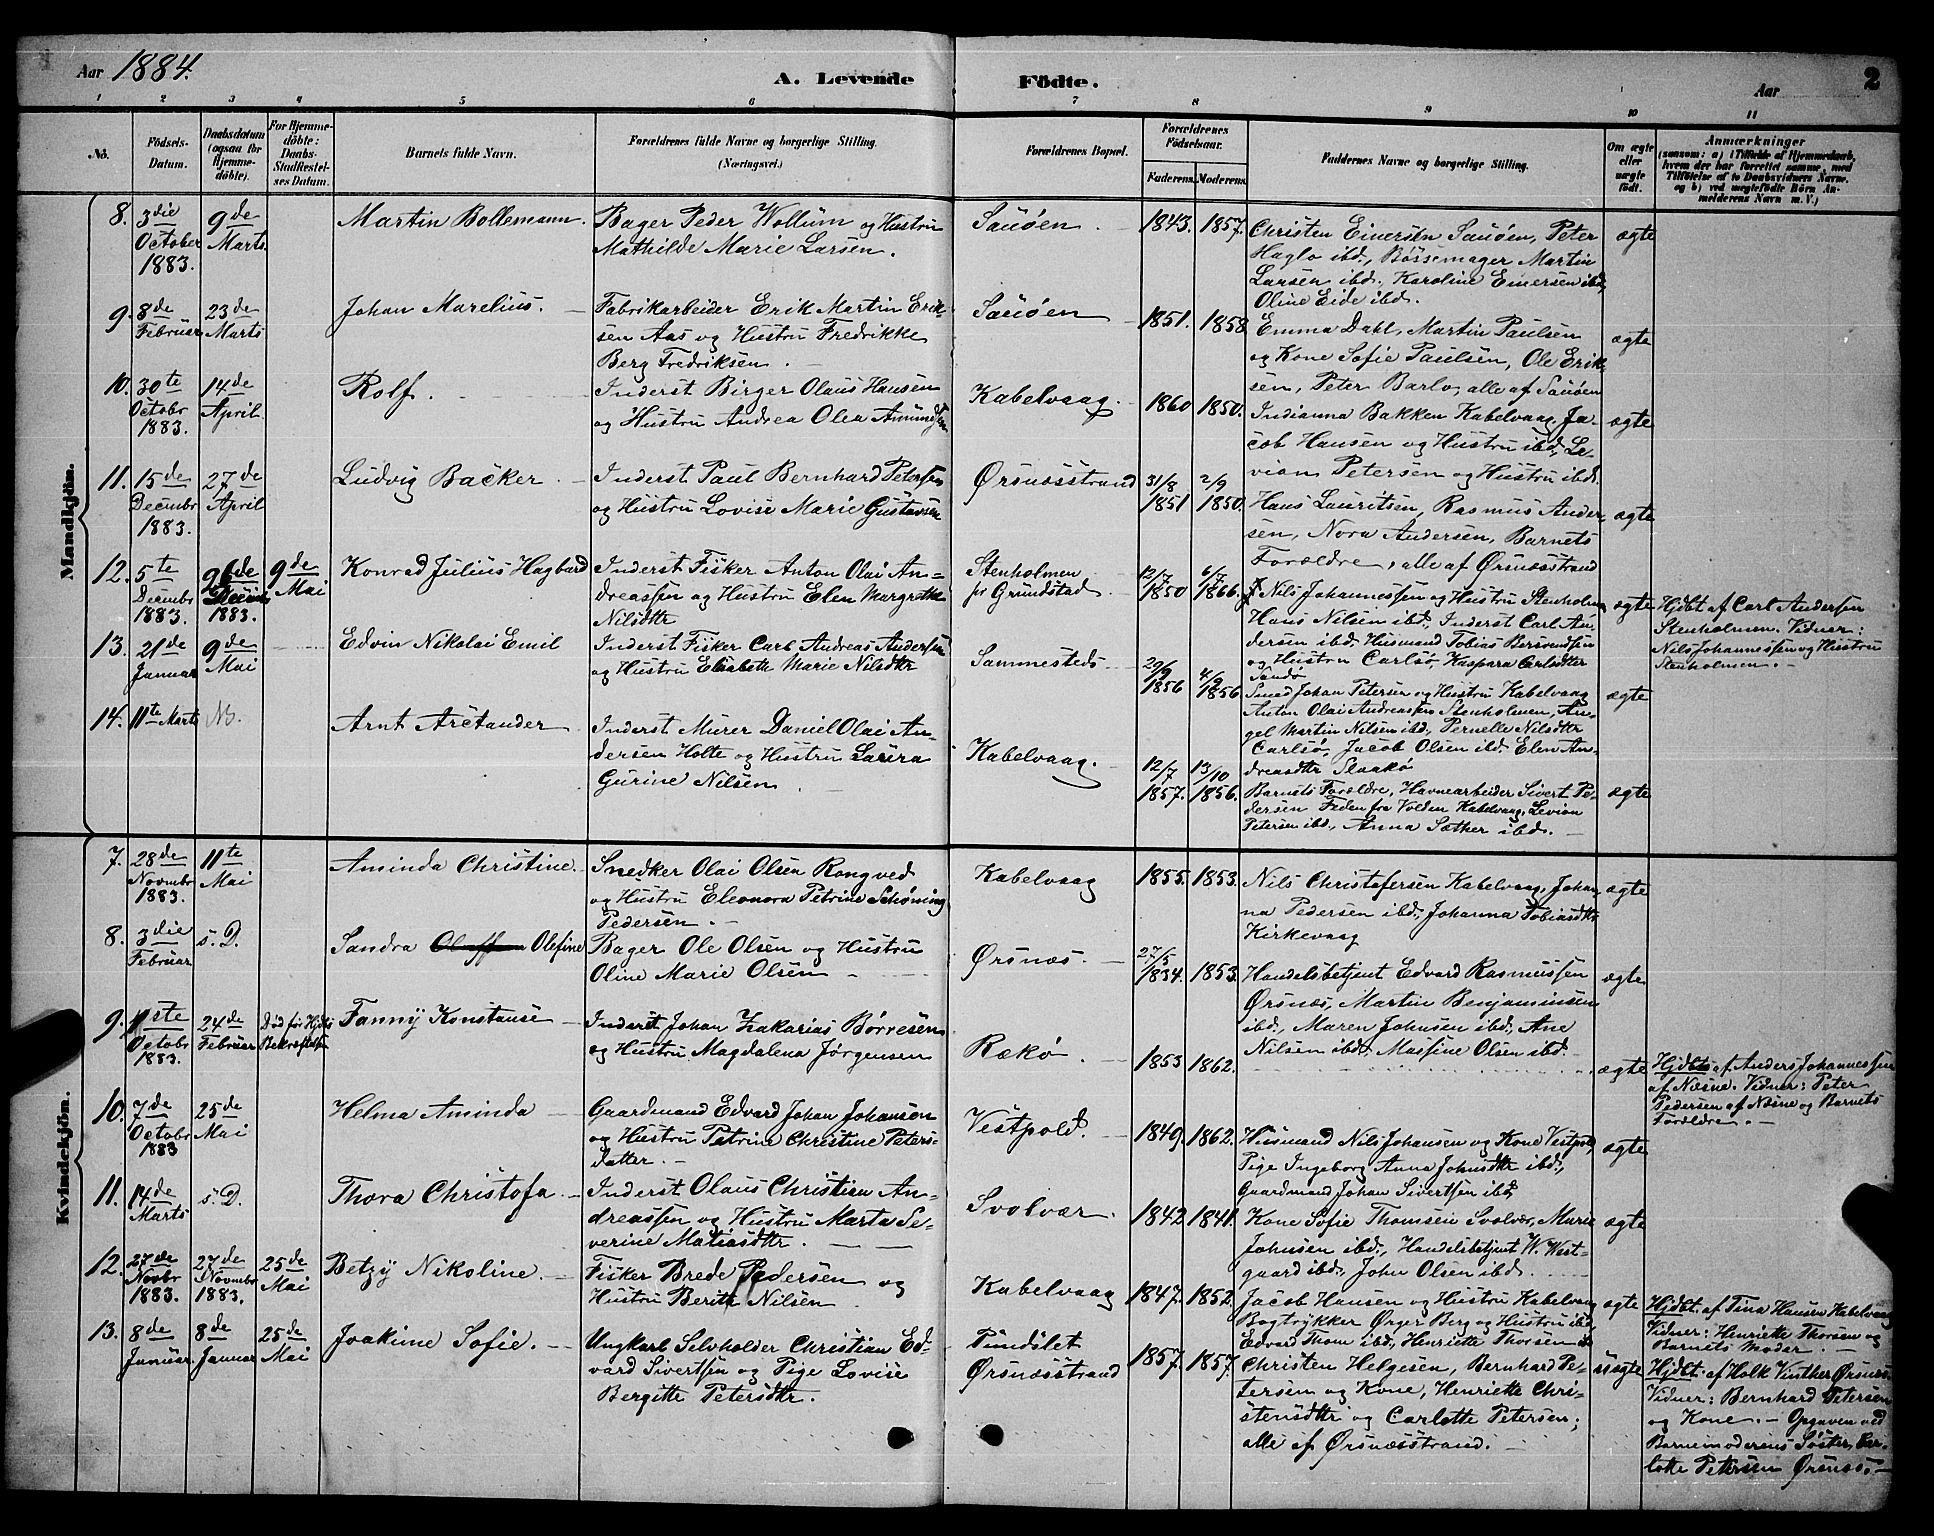 Aar 1884.
A. Levende Födte.
Aar
2
1 2 3 4 5 6 7 8 9 10 11
No.
Födsels-Datum.
Daabsdatum (ogsaa for Hjemme-döbte).
For Hjemme-döbte: Daabs-Stadfæstel-ses Datum.
Barnets fulde Navn.
Forældrenes fulde Navne og borgerlige Stilling. (Næringsvei.)
Forældrenes Bopæl.
Forældrenes Födselsaar.
Faderens. Moderens.
Faddernes Navne og borgerlige Stilling.
Om ægte eller uægte födt.
Anmærkninger
(saasom: a) i Tilfælde af Hjemmedaab, hvem der har forrettet samme, med Tilföielse af to Daabsvidners Navne, og b) ved uægtefödte Börn An-melderens Navn m. V.)
Mandkjön.
8. 3die October 1883. 9de Marts
Martin Bollemann.
Bager Peder Wollum og Hustru
Mathilde Marie Larsen.
Sauöen 1843. 1857.
Christen Einersen Sauöen, Peter
Haglo ibd., Børsemager Martin
Larsen ibd. Karoline Einersen ibd,
Oline Eide ibd.
ægte
9. 8de Februar 23de Marts
Johan Marelius.
Fabrikarbeider Erik Martin Erik-
sen Aas og Hustru Fredrikke
Berg Fredriksen.
Sauöen 1851. 1858
Emma Dahl, Martin Paulsen
og Kone Sofie Paulsen, Ole Erik-
sen, Peter Barlo, alle af Sauöen
ægte
10. 30te Octobr 1883. 14de April.
Rolf.
Inderst Birger Olaus Hansen
og Hustru Andrea Olea Amundsen
Kabelvaag. 1860 1850.
Indianna Bakken Kabelvaag, Ja-
cob Hansen og Hustru ibd, Le-
vian Petersen og Hustru ibd.
ægte
11. 15de Decembr 1883. 27de April
Ludvig Backer
Inderst Paul Bernhard Petersen
og Hustru Lovise Marie Gustavsen
Ørsnæsstrand 31/8 1851 2/9 1850.
Hans Lauritsen, Rasmus Ander-
sen, Nora Andersen, Barnets
Forældre, alle af Ørsnæsstrand
ægte
12. 5te Decembr 1883. 1883. 9de Mai
Konrad Julius Hagbard
Inderst Fisker Anton Olai An-
dreassen og Hustru Elen Margrethe
Nilsdtr
Stenholmen
pr Grundstad 12/7 1850 6/7 1866.
Nils Johannessen og Hustru Stenholmen
Hans Nilsen ibd, Inderst Carl An-
dersen ibd. Husmand Tobias
og Hustru Carlsö, Kaspara Carlsdtr
Sandö
ægte
Hjdbt af Carl Andersen
Stenholmen. Vidner:
Nils Johannessen og Hustru
Stenholmen.
13. 21de Januar 9de Mai
Edvin Nikolai Emil
Inderst Fisker Carl Andreas Andersen
og Hustru Elisabeth Marie Nilsdtr
Sammesteds 29/9 1856 4/9 1856
Smed Johan Petersen og Hustru Kabelvaag
Anton Olai Andreassen Stenholmen, An-
gel Martin Nilsen ibd, Pernelle Nilsdtr
Carlsö, Jacob Olsen ibd. Elen An-
dreasdtr Slaakö
ægte
14. 11te Marts
Arnt Arctander
Inderst Murer Daniel Olai An-
dersen Holte og Hustru Laura
Gurine Nilsen
Kabelvaag. 12/7 1857. 13/10 1856.
Barnets Forældre, Havnearbeider Sivert Pe-
dersen Feden fra Volden Kabelvaag, Levion
Petersen ibd, Anna Sæther ibd.
ægte
Kvindekjön.
7. 28de Novmbr 1883. 11te Mai
Aminda Christine.
Snedker Olai Olsen Rongved
og Hustru Eleonora Petrine Schøning
Pedersen.
Kabelvaag 1855. 1853.
Nils Christofersen Kabelvaag, Johan-
na Pedersen ibd, Johanna Tobiasdtr
Kirkevaag
ægte
8. 3die Februar s. D.
Sandra Olefine
Bager Ole Olsen og Hustru
Oline Marie Olsen
Ørsnæs. 27/5 1834. 1853.
Handelsbetjent Edvard Rasmussen
Ørsnæs, Martin Benjaminsen
ibd., Maren Johnsen ibd, Ane
Nilsen ibd, Massine Olsen ibd.
ægte
9. Octobr 1883. 24de Februar Død før Hjdbs Bekræftelsen
Fanny Konstanse
Inderst Johan Zakarias Börresen
og Hustru Magdalena Jørgensen
Rækø. 1853 1862.
ægte
Hjdbt af Anders Johannessen
af Næsne. Vidner: Peter
Pedersen af Næsne og Barnets
Forældre.
10. 7de Octobr 1883 25de Mai
Helma Aminda
Gaardmand Edvard Johan Johansen
og Hustru Petrine Christine Peters-
datter.
Vestpold. 1849. 1862.
Husmand Nils Johansen og Kone Vestpold,
Pige Ingeborg Anna Johnsdtr ibd.,
Gaardmand Johan Sivertsen ibd,
ægte
11. 14de Marts s. D.
Thora Christofa.
Inderst Olaus Christian An-
dreassen og Hustru Marta Se-
verine Matiasdtr.
Svolvær. 1842 1841.
Kone Sofie Thomsen Svolvær, Marie
Johnsen ibd., Handelsbetjent W. West-
gaard ibd., John Olsen ibd.
ægte
12. 27de Novbr 1883. 27de Novmbr 1883. 25de Mai
Betzy Nikoline.
Fisker Brede Pedersen og
Hustru Berith Nilsen
Kabelvaag 1847. 1852.
Jacob Hansen og Hustru Kabelvaag
Bogtrykker Ørger Berg og Hustru ibd
Edvard Thom ibd., Henriette Thorsen ibd
ægte
Hjdbt. af Tina Hansen Kabelvaag
Vidner: Henriette Thorsen og
Barnets Moder.
13. 8de Januar. 8de Januar 25de Mai
Joakime Sofie.
Ungkarl Selvholder Christian Ed-
vard Sivertsen og Pige Lovise
Bergitte Petersdtr.
Pundslet
Ørsnæsstrand 1857. 1857.
Christen Helgesen, Bernhard Pe-
tersen og Kone, Henriette Chri-
stensdtr og Carlotte Petersen;
alle af Ørsnæsstrand.
uægte
Hjdbt. af Holk Vinther Ørsnæs.
Vidner: Bernhard Petersen
og Kone. Opgaven ved
Barnemoderens Søster, Car-
lotte Petersen Ørsnæs.